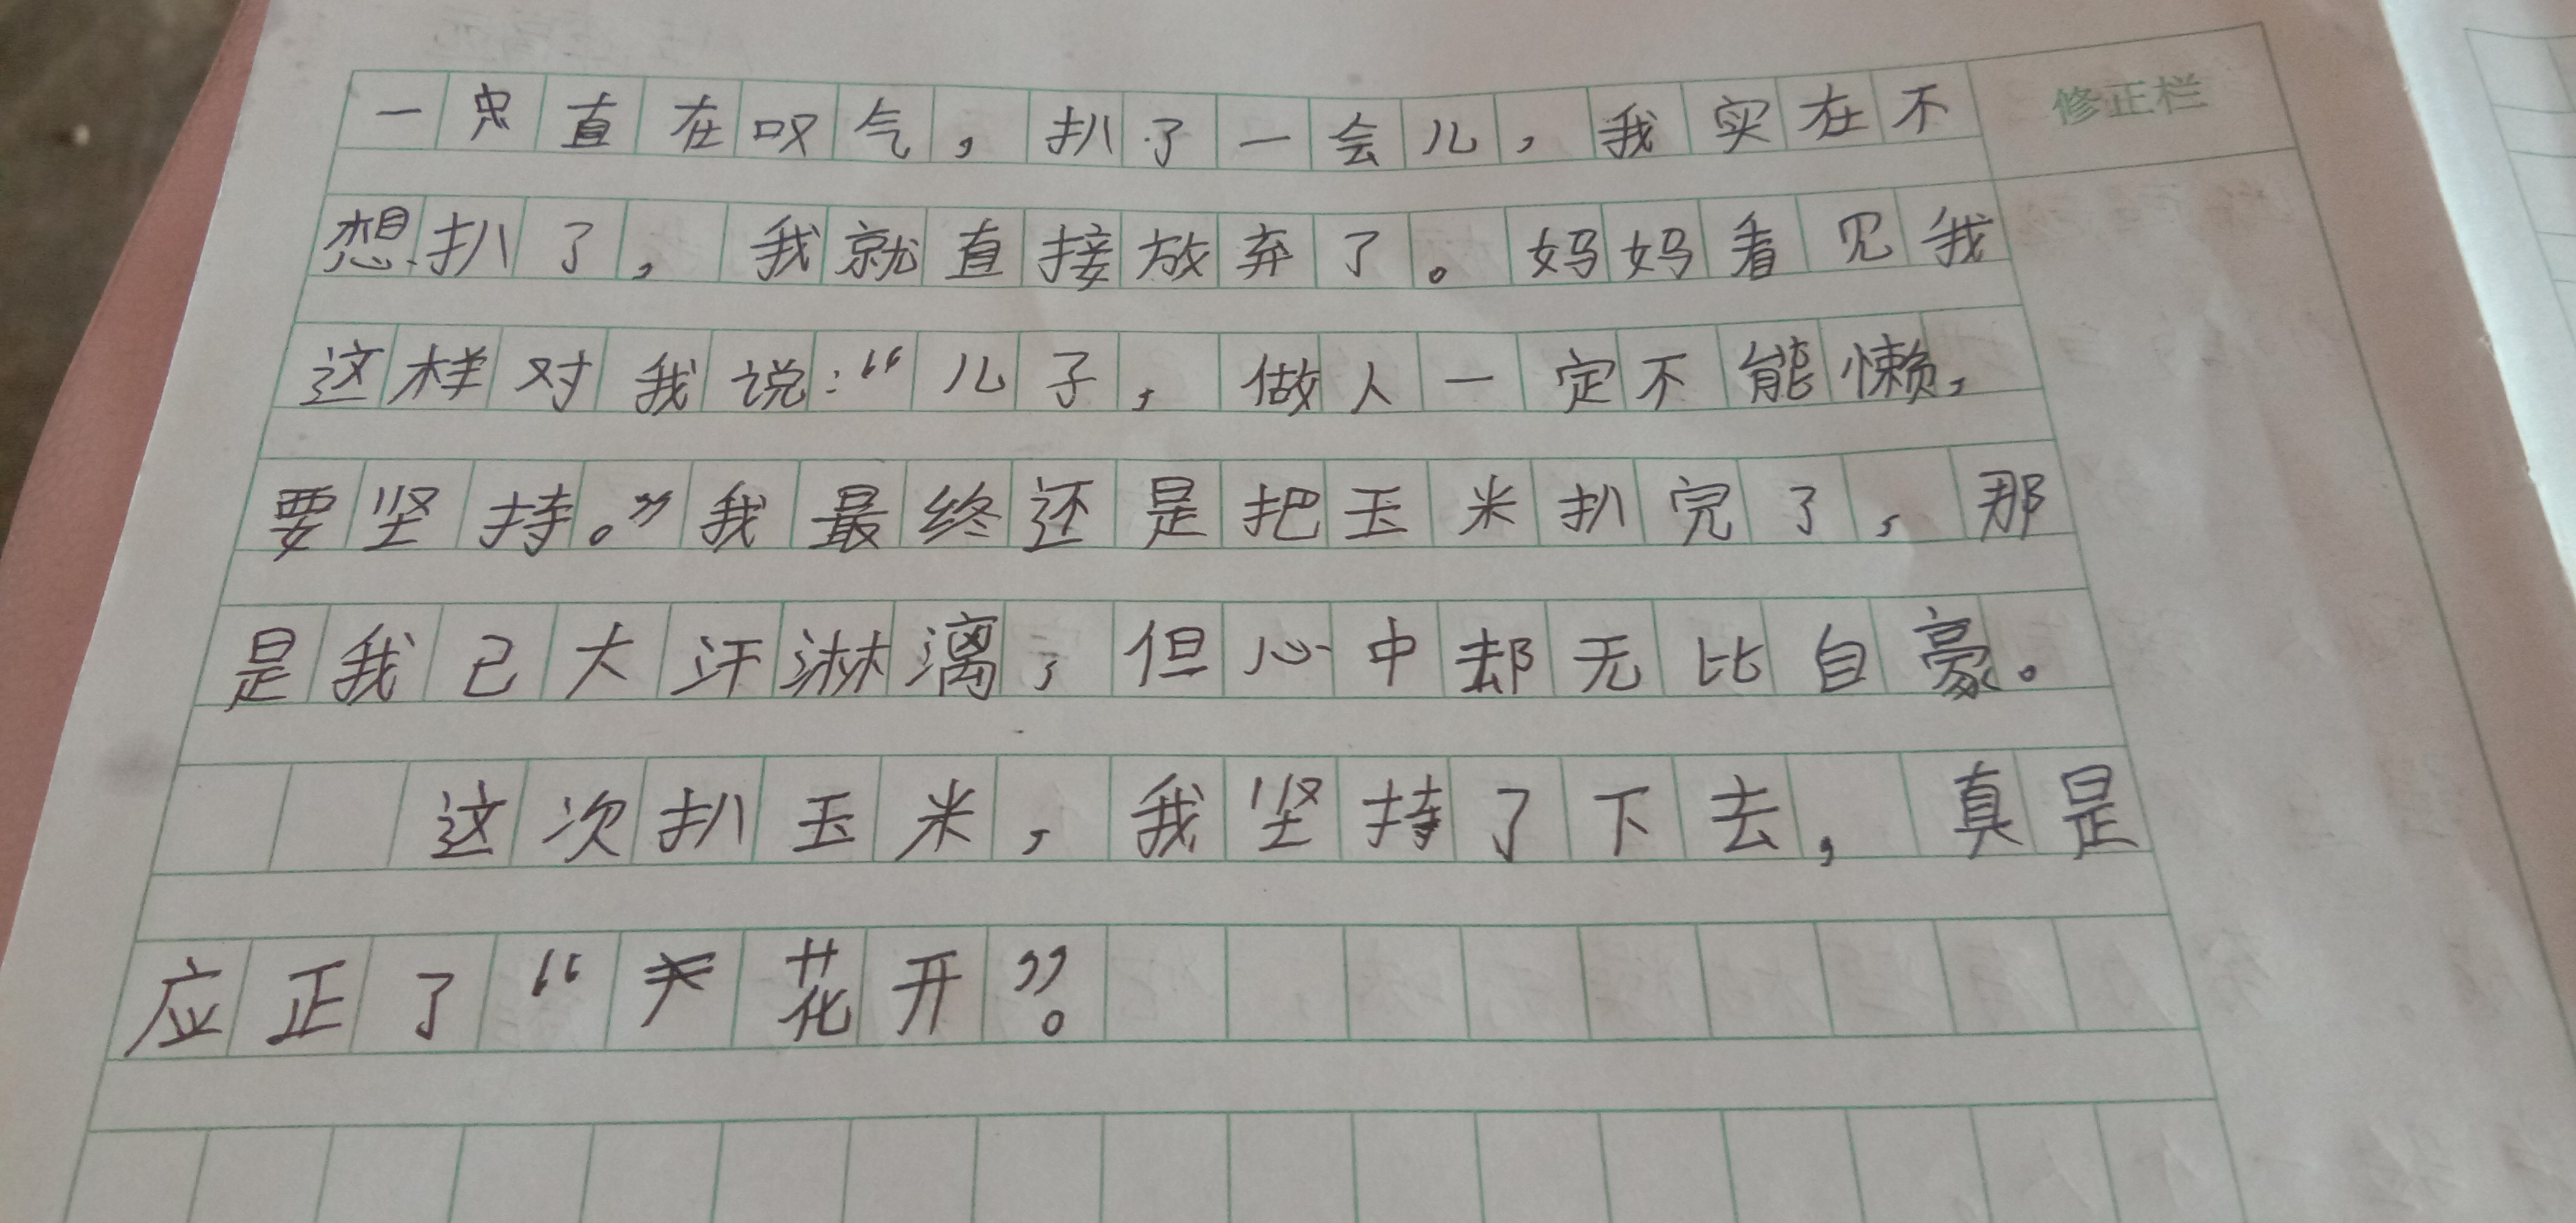 一直在叹气，扒了一会儿，我实在不
修正栏
想扒了，我就直接放弃了。妈妈看见我
这样对我说：“儿子，做人一定不能懒，
要坚持。”我最终还是把玉米扒完了，那
是我已大汗淋漓，但心中却无比自豪。
这次扒玉米，我坚持了下去，真是
应正了“花开”。